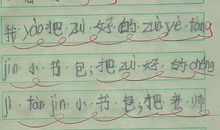 我 yào 把 zuì 好 的 zuò yè fàng
jìn 小 书 包，把 zuì 好 的 chéng
jì fàng jìn 小 书 包，把 老 师